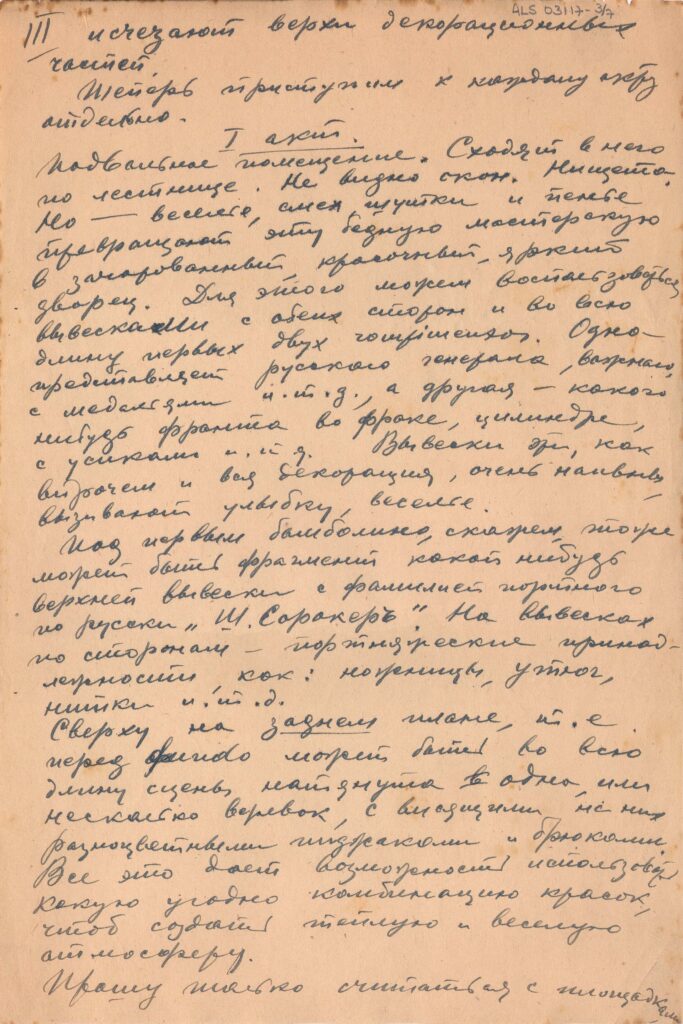 ALS 03117-3/7
III исчезают верхи декорационных
частей.
Теперь приступим к каждому акту
отдельно.
I акт.
Подвальное помещение. Сходят в него
по лестнице. Не видно окон. Нищета.
Но — веселье, смех шутки и пенье
превращают эту бедную мастерскую
в зачарованный, красочный, яркий
дворец. Для этого можем воспользоваться
вывесками с обеих сторон и во всю
длину первых двух rompimentos. Одна—
представляет русского генерала, важного,
с медалями и.т.д., а другая — какого
нибудь франта во фраке, цилиндре,
с усиками и.т.д. Вывески эти, как
впрочем и вся декорация, очень наивны,
вызывают улыбку, веселье.
Под первым бамболино, скажем, тоже
может быть фрагмент какой нибудь
верхней вывески с фамилией портного
по русски „Ш. Сорокеръ". На вывесках
по сторонам — портняжеские принад-
лежности, как: ножницы, утюг,
нитки и.т.д.
Сверху на заднем плане, т.е.
перед fundo может быть во всю
длину сцены натянута одна, или
несколько веревок, с висящими на них
разноцветными пиджаками и брюками.
Все это дает возможность использовать
какую угодно комбинацию красок,
чтоб создать теплую и веселую
атмосферу.
Прошу только считаться с площадками